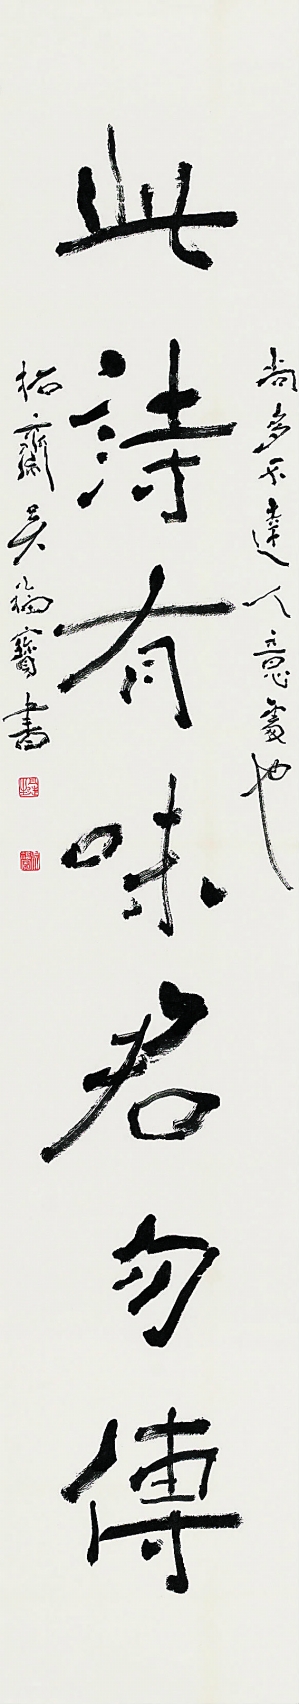 尚多不達人意處也
此詩有味君勿傳
柘齋吳福寶書